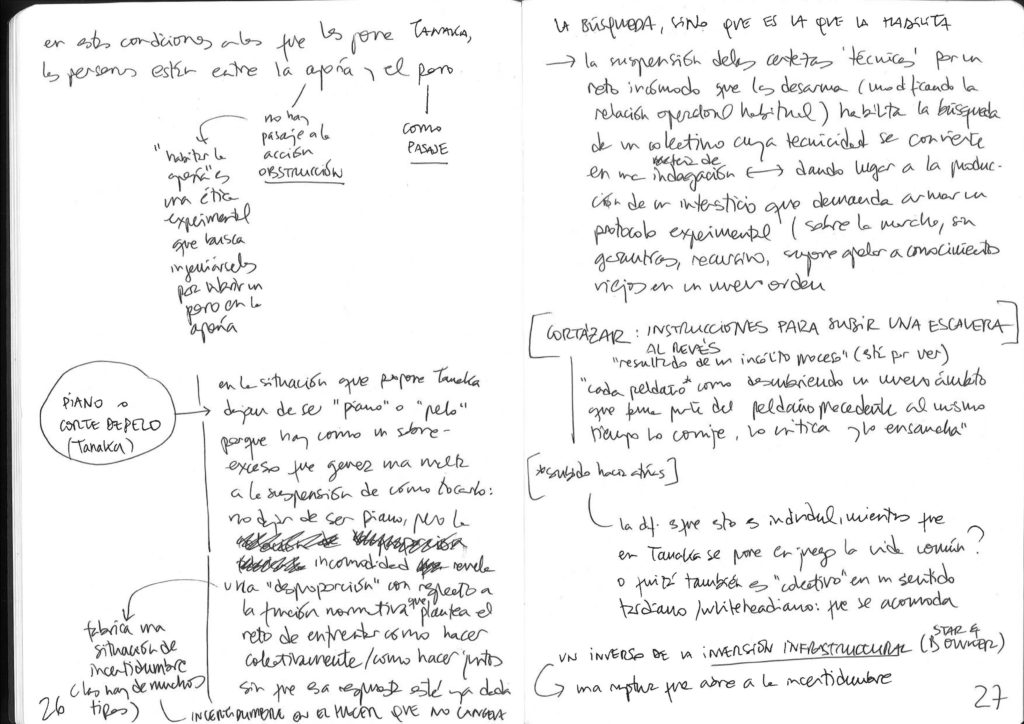 en estas condiciones a las que les pone TANAKA,
las personas están entre la aporía y el poro
no hay
pasaje a la
acción
OBSTRUCCIÓN
como
PASAJE
"habitar la
aporía" es
una ética
experimental
que busca
ingeniárselas
por abrir un
poro en la
aporía
PIANO o
CORTE DE PELO
(Tanaka)
en la situación que propone Tanaka
dejan de ser "piano" o "pelo"
porque hay como un sobre-
exceso que genera una vuelta
a la suspensión de cómo tocarlo:
no dejar de ser piano, pero la
incomodidad revela
una "desproporción" con respecto a
la función normativa que plantea el
reto de enfrentar como hacer
colectivamente / como hacer juntos
sin que esa respuesta esté ya dada
INCERTIDUMBRE EN EL HACER QUE NO
fabrica una
situación de
incertidumbre
(las hay de muchos
tipos)
26
LA BÚSQUEDA, SINO QUE ES LA QUE LA HABILITA
→ la suspensión de las certezas 'técnicas' por un
reto incómodo que les desarma (modificando la
relación operacional habitual) habilita la búsqueda
de un colectivo cuya tecnicidad se convierte
en una de indagación ↔ dando lugar a la produc-
ción de un intersticio que demanda armar un
protocolo experimental (sobre la marcha, sin
garantías, recursivo, supone apelar a conocimientos
viejos en un nuevo orden
[CORTÁZAR: INSTRUCCIONES PARA SUBIR UNA ESCALERA
AL REVÉS]
"resultado de un insólito proceso" (está por ver)
"cada peldaño* como descubriendo un nuevo ámbito
que forma parte del peldaño precedente al mismo
tiempo lo corrije, lo critica y lo ensancha"
[*subido hacia atrás]
la dif. es que esto es individual, mientras que
en Tanaka se pone en juego la vida común?
o quizá también es "colectivo" en un sentido
tardiano/whiteheadiano: que se acomoda
UN INVERSO DE LA INVERSIÓN INFRASTRUCTURAL (STAR & BOWKER)
una ruptura que abre a la incertidumbre
27